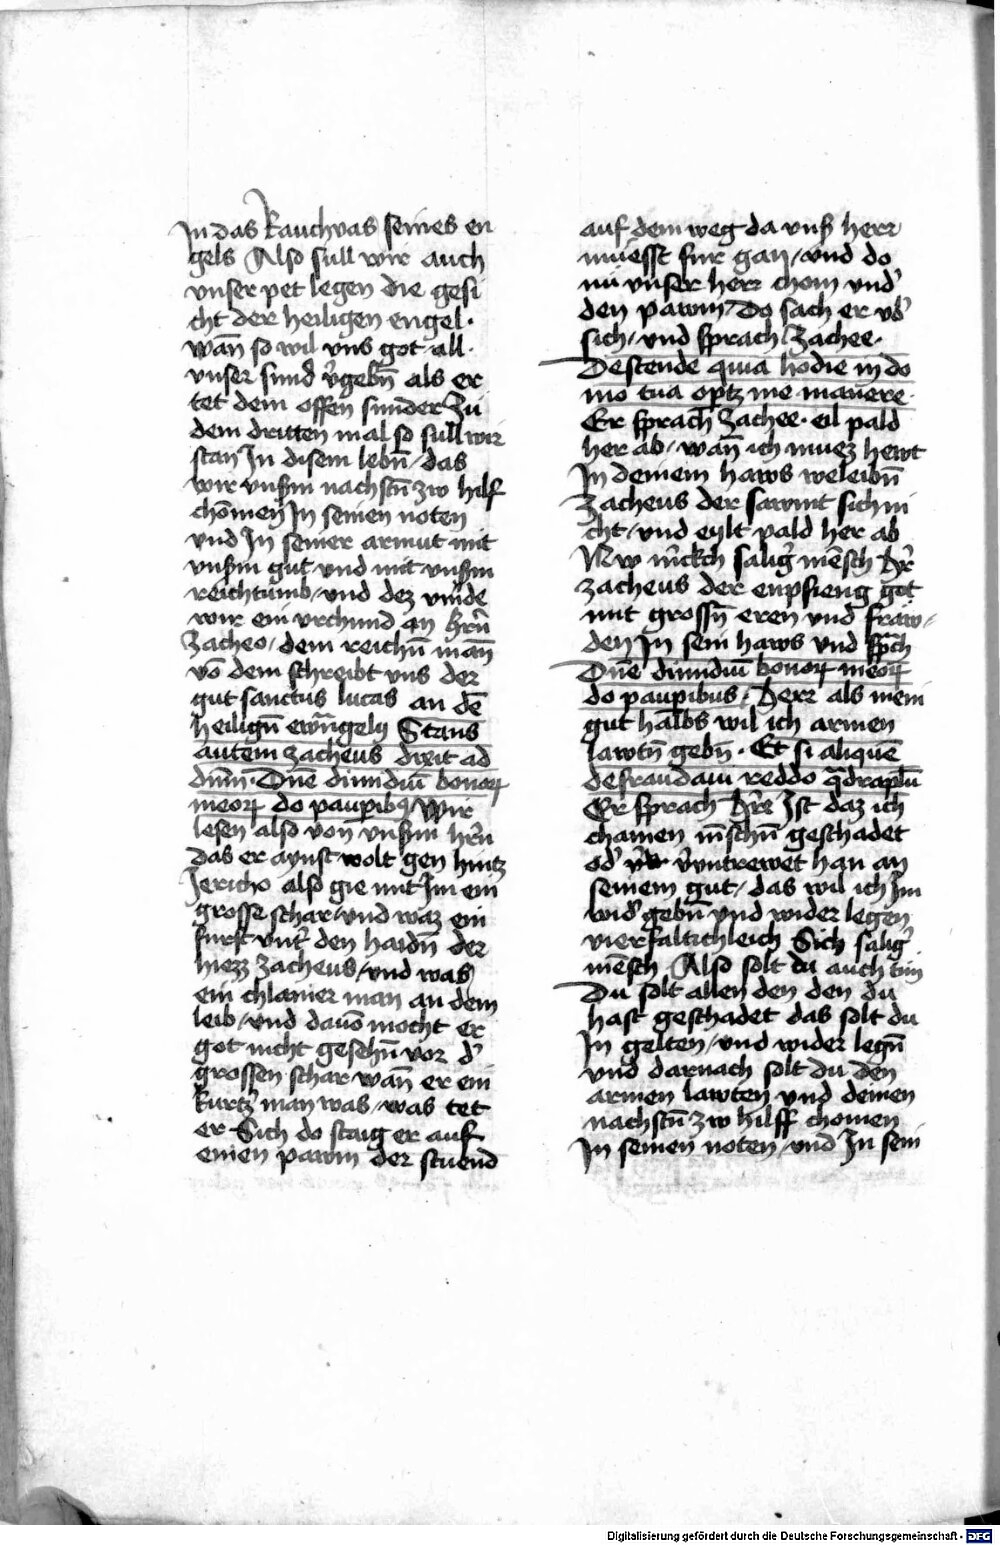 In das Rauchvas seines en
gels Also sull wir auch
vnser pet legen die gesi
cht der heiligen engel·
wān so wil vns got all·
vnser sund v̉gebn̄ als er
tet dem offen sunder Zu
dem dritten mal so sull wir
stan In disem lebn̄ / das
wir vnsm̄ nachstn̄ zw hilf
chomen In seinen noten
vnd In seiner armut mit
vnsm̄ gut vnd mit vnsm̄
reichtumb / vnd dez vinde
wir ein vrchund an hr̄n
Zacheo / dem reichn̄ mān
vō dem schreibt vns der
gut sanctus lucas an dē
heilign̄ ewāngely Stans
autem zacheus dixit ad
dnm̄· Dn̄e dimidiū bonoꝝ
meoꝝ do paupibꝰ Wir
lesen also von vnsm̄ hr̄n
das er aynst wolt gen hintz
Jericho also gie mit Im ein
grosse schar / vnd waz ein
furst vnt̉ den haidn̄ der
hiezz zacheus / vnd was
ein chlainer man an dem
leib / vnd dauō mocht er
got nicht gesehn̄ vor d̉
grossen schar wān er ein
kurtz̉ man was / was tet
er Sich do staig er auf
einen pawm der stuend
auf dem weg da vnſ̉ herr
müesst fur gan / vnd do
nu vnser herr chom vnd̉
den pawm / Do sach er vb̉
sich / vnd sprach Zachee·
Descende quia hodie in do
mo tua optꝫ me manere·
Er sprach Zachee· eil pald
her ab / wān ich muez hewt
In deinem haws weleibn̄
Zacheus der sawmt sich ni
cht / vnd eylt pald her ab
Nw m̉ckch salig̉ mēsch hr̄
zacheus der enpfieng got
mit grossn̄ eren vnd fraw /
den In sein haws vnd sprāch
Dn̄e dimidiū bonoꝝ meoꝝ
do paupibus / Herr als mein
gut halbs wil ich armen
lawtn̄ gebn̄ · Et si aliquē
defraudaui reddo qͣdruplū
Er sprach hr̄e Ist daz ich
chainen mn̄schn̄ geschadet
od̉ v̉untrewet han an
seinem gut / das wil ich Im
wid̉ gebn̄ vnd wider legen
vierfaltichleich Sich salig̉
mēsch Also solt du auch tün
Du solt allen den den du
hast geschadet das solt du
In gelten / vnd wider legn̄
vnd darnach solt du den
armen lawten vnd deinen
nachstn̄ zw hilff chomen
In seinen noten / vnd In sein
Digitalisierung gefördert durch die Deutsche Forschungsgemeinschaft - DFG